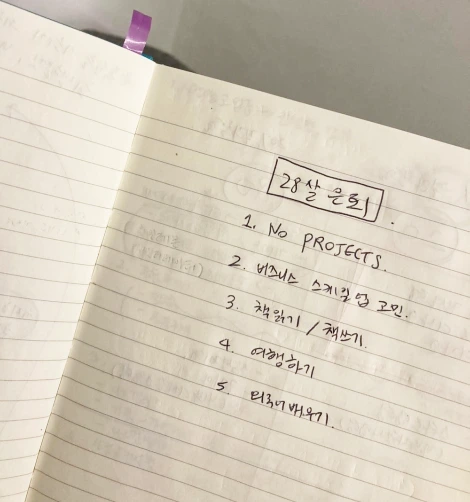 28살 은퇴.
1. No PROJECTS.
2. 비즈니스 스케일업 고민.
3. 책읽기 / 책쓰기.
4. 여행하기
5. 외국어배우기.